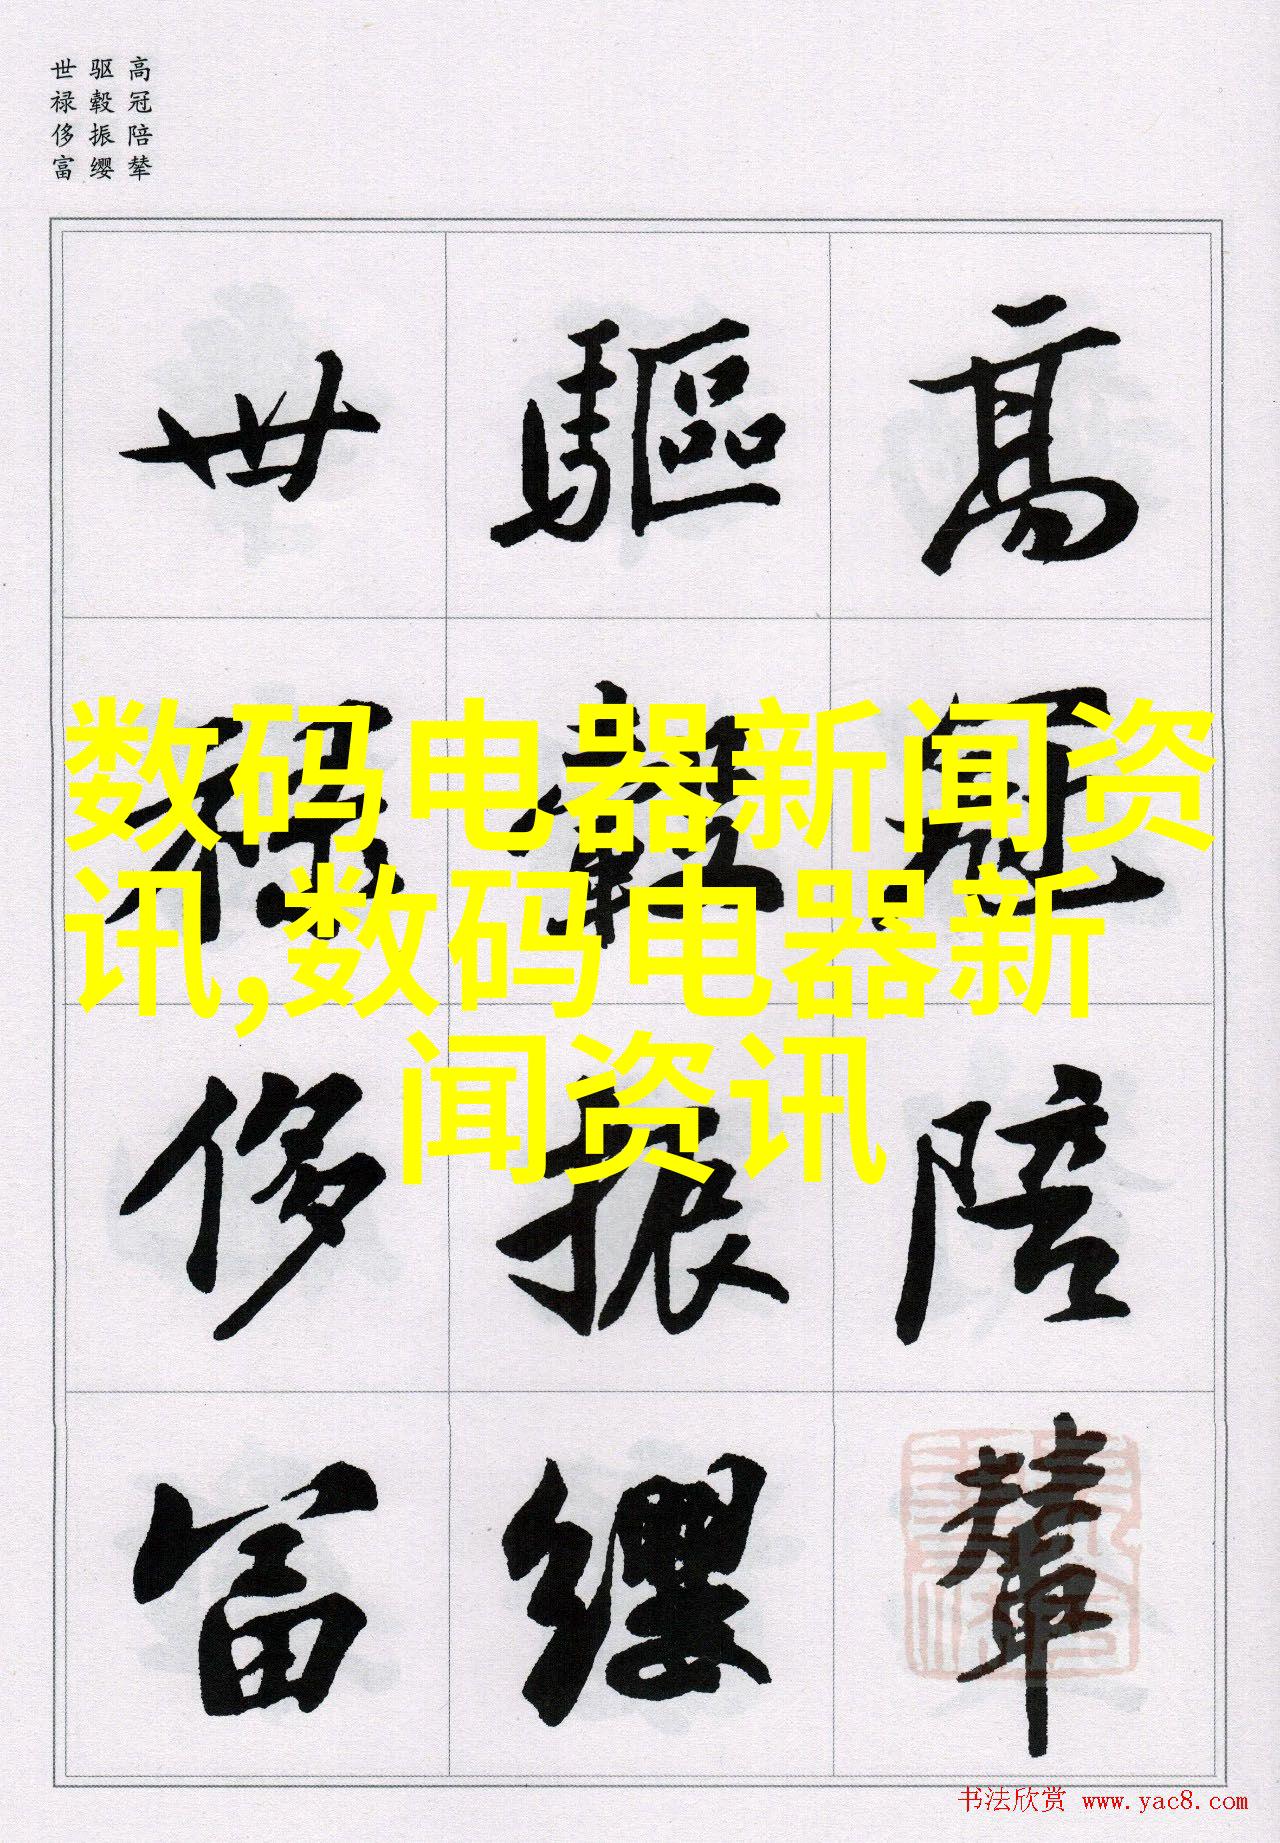 高冠陪辇
驱毂振缨
世禄侈富
高冠陪輦
驅轂振纓
世禄侈富
数码电器新闻资
讯,数码电器新
闻资讯
书法欣赏 www.yac8.com